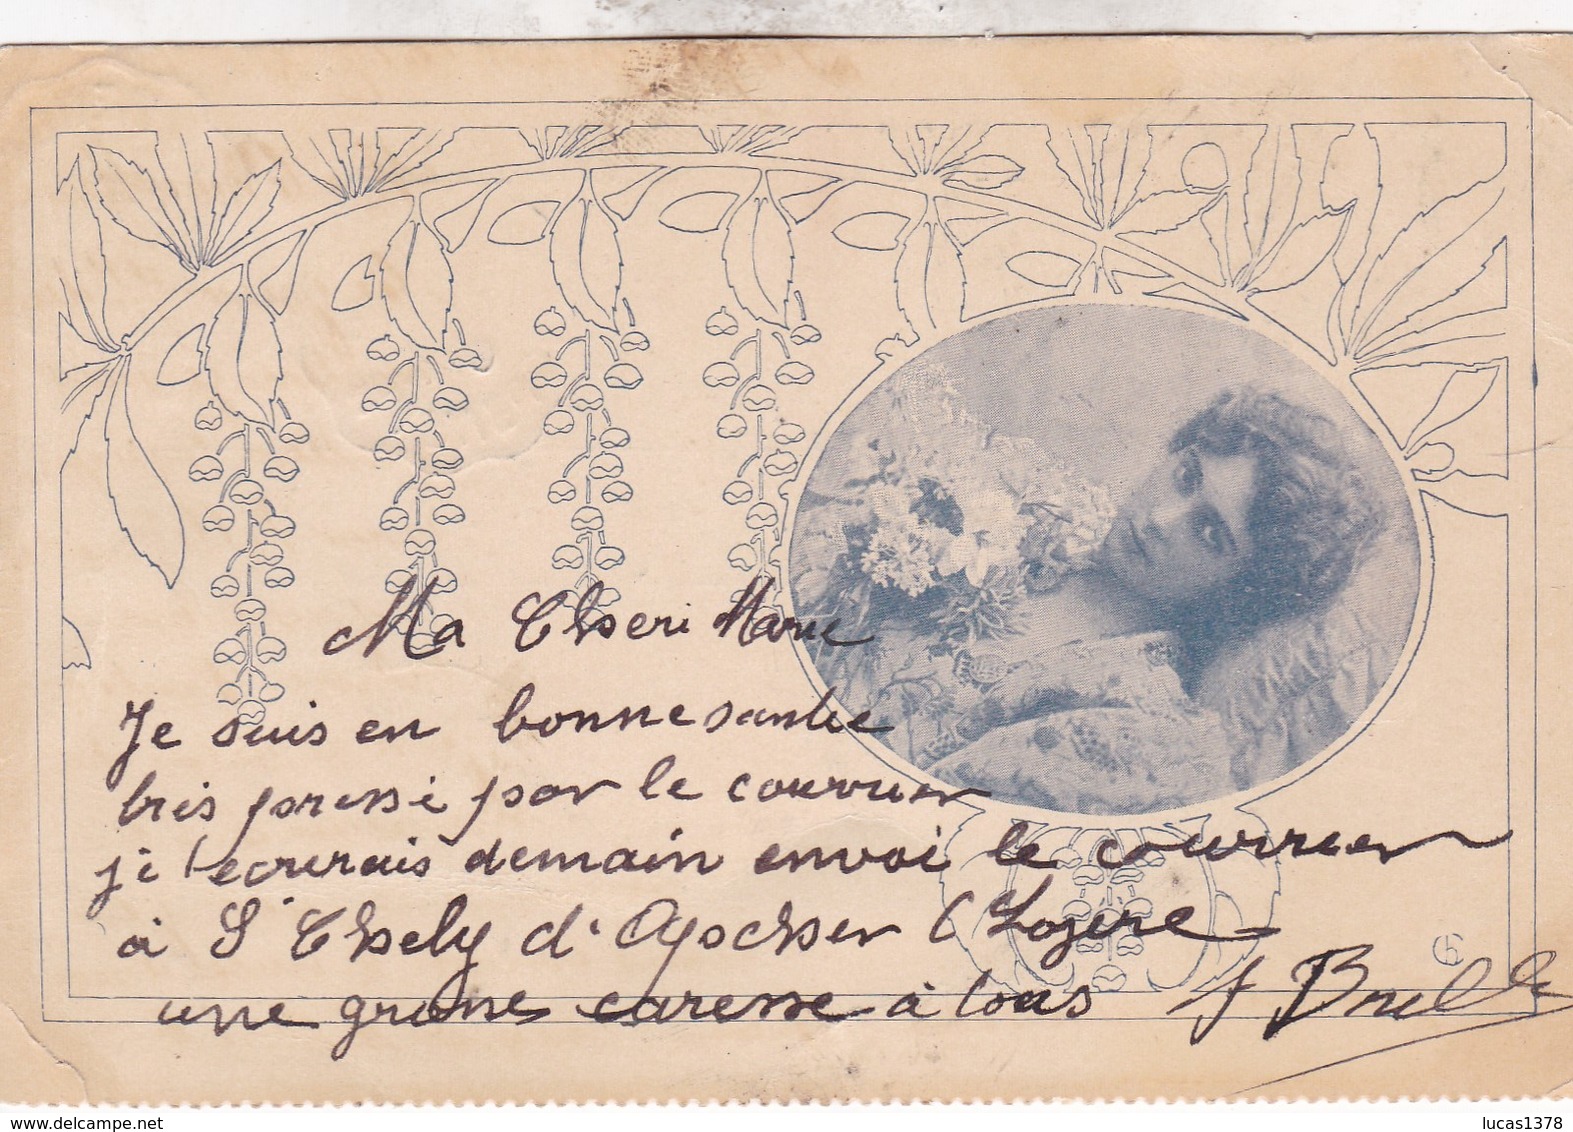 Ma Cheri Marie
Je suis en bonne sante
tres presse par le courrier
je t'ecrirais demain envoi le courrier
à St Chely d'Apcher (Lozere
une grosse caresse à tous J Brel
G
lucas1378